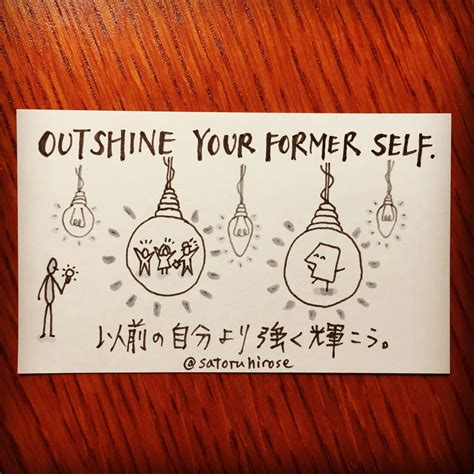 OUTSHINE YOUR FORMER SELF.
以前の自分より強く輝こう。
@satoruhirose